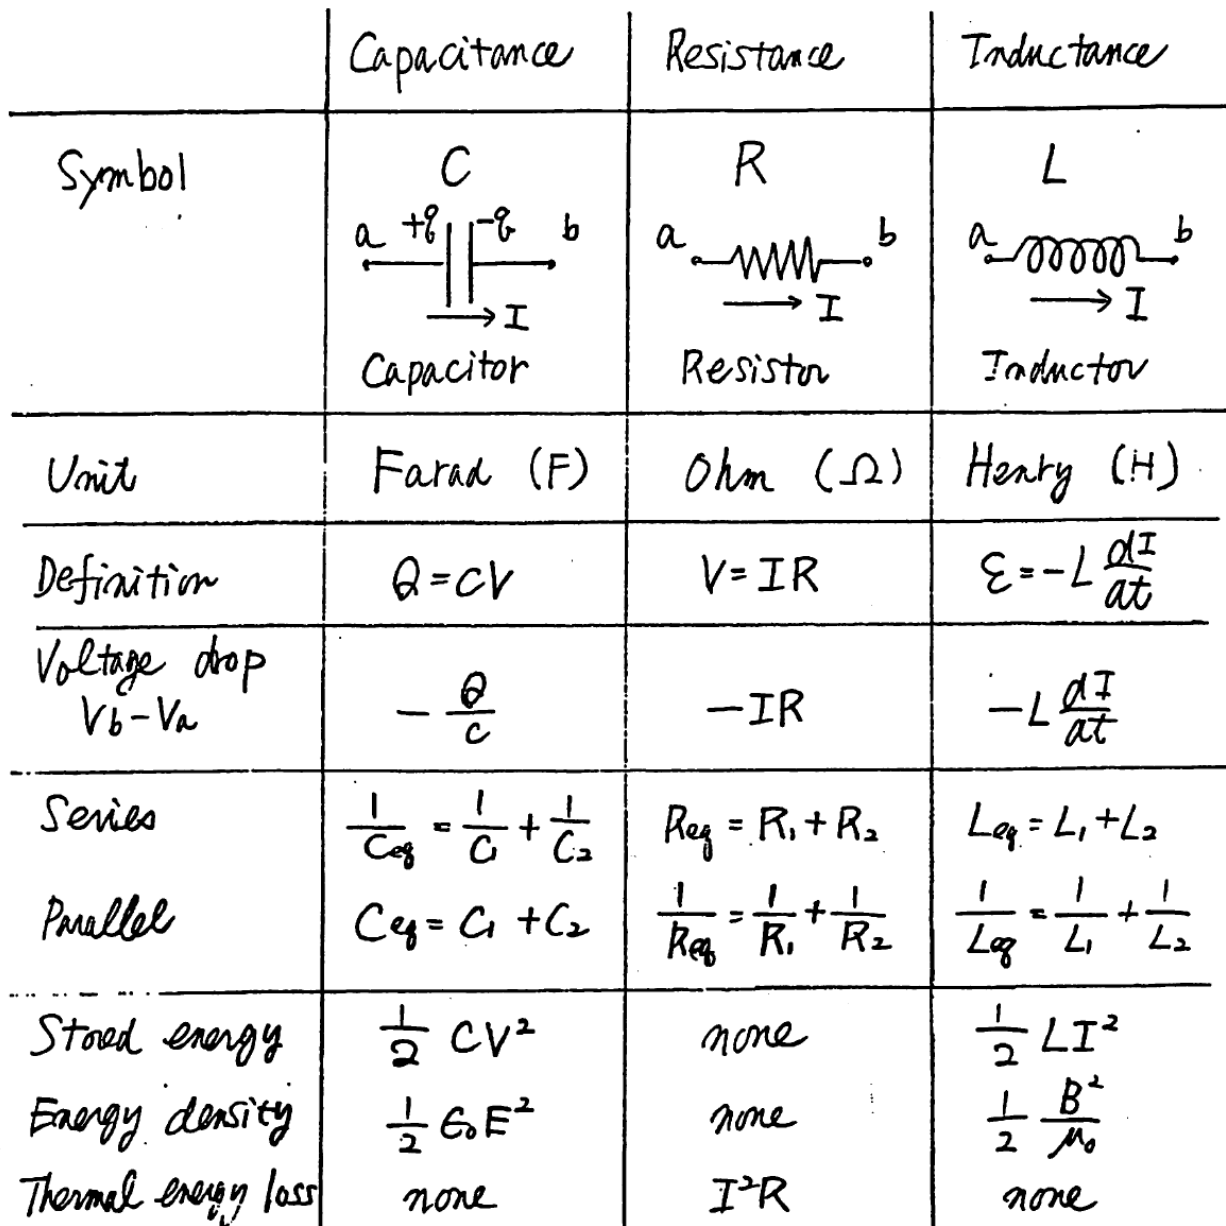 Capacitance Resistance Inductance
Symbol C R L
a +q -q b a b a b
I I I
Capacitor Resistor Inductor
Unit Farad (F) Ohm (Ω) Henry (H)
Definition Q=CV V=IR ε=-L dI/dt
Voltage drop
Vb-Va -Q/C -IR -L dI/dt
Series 1/Ceq = 1/C1 + 1/C2 Req = R1 + R2 Leq = L1 + L2
Parallel Ceq = C1 + C2 1/Req = 1/R1 + 1/R2 1/Leq = 1/L1 + 1/L2
Stored energy 1/2 CV² none 1/2 LI²
Energy density 1/2 ε0E² none 1/2 B²/μ0
Thermal energy loss none I²R none